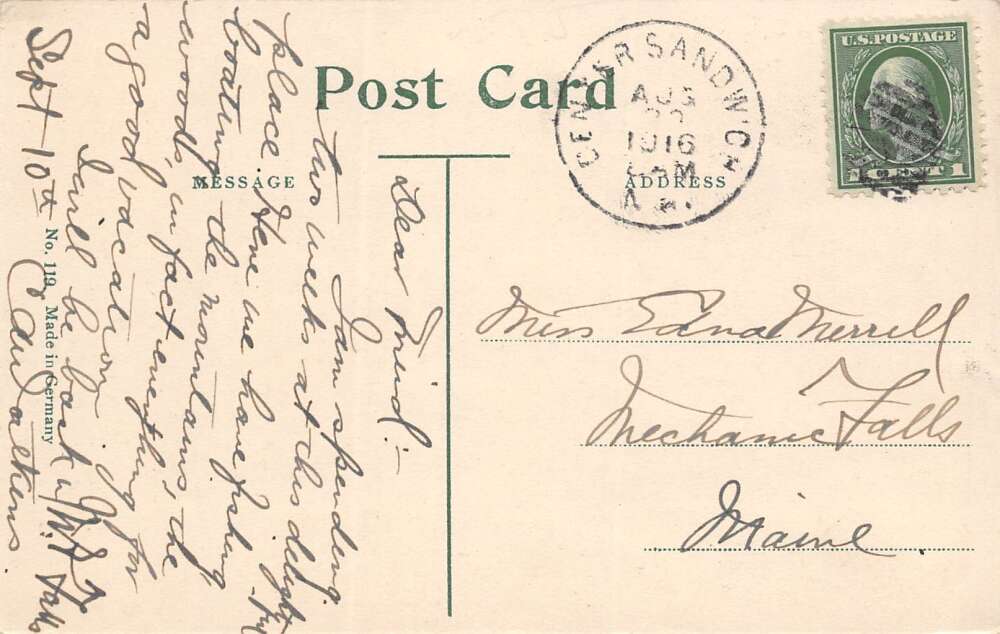 Post Card
MESSAGE
ADDRESS
CENTER SANDWICH
AUG
1916
A.M.
U.S. POSTAGE
1 CENT 1
Dear Friend:-
I am spending
two weeks at this delight-ful
place. Here we have fishing
boating, the mountains, the
woods, in fact everything for
a good vacation.
I will be back in M. Falls
Sept-10th
Miss Edna Merrill
Mechanic Falls
Maine
No. 119 Made in Germany